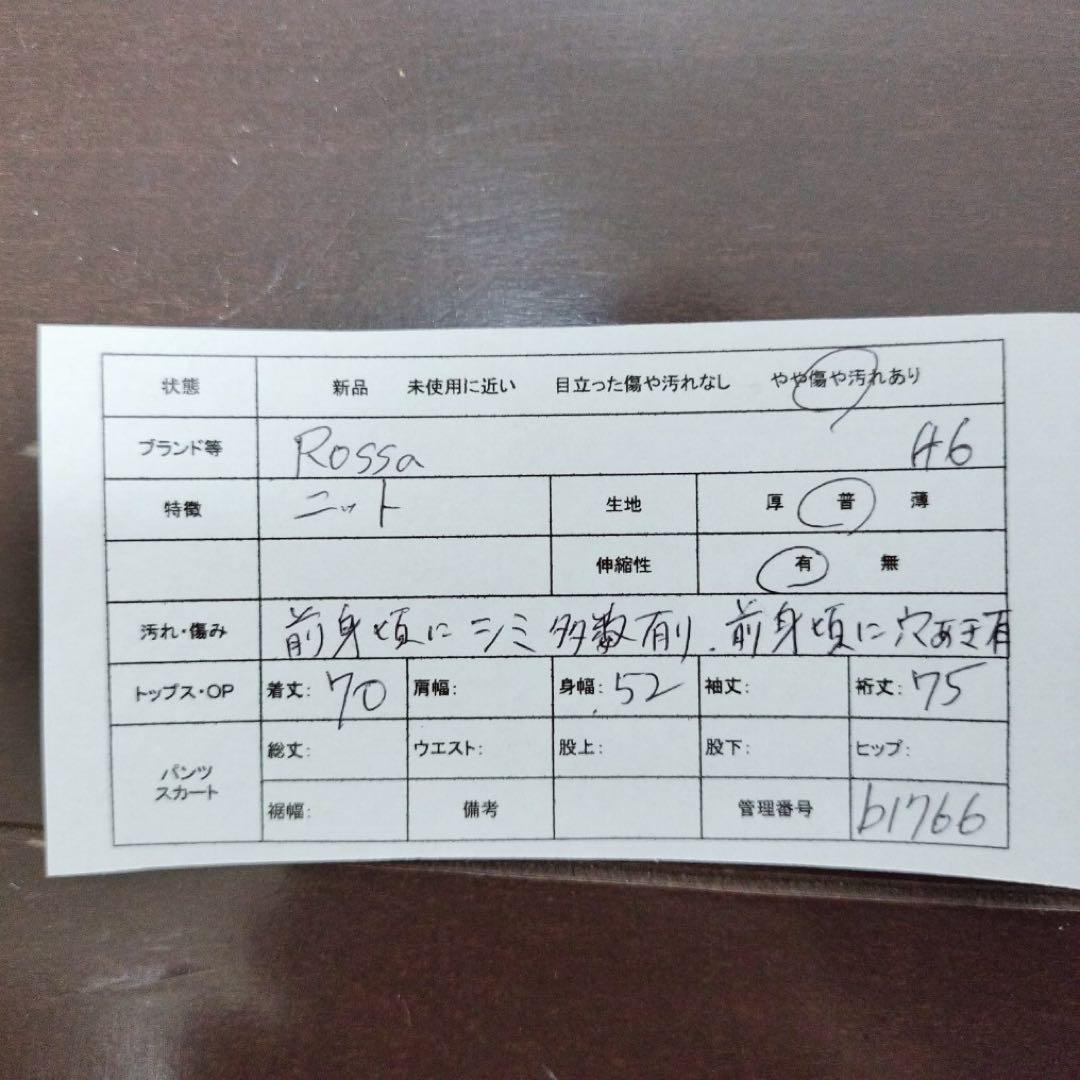 状態 新品 未使用に近い 目立った傷や汚れなし やや傷や汚れあり
ブランド等 Rossa 46
特徴 ニット 生地 厚 普 薄
伸縮性 有 無
汚れ・傷み 前身頃にシミ多数有り、前身頃に穴あき有
トップス・OP 着丈: 70 肩幅: 身幅: 52 袖丈: 裄丈: 75
パンツ スカート 総丈: ウエスト: 股上: 股下: ヒップ:
裾幅: 備考 管理番号 b1766